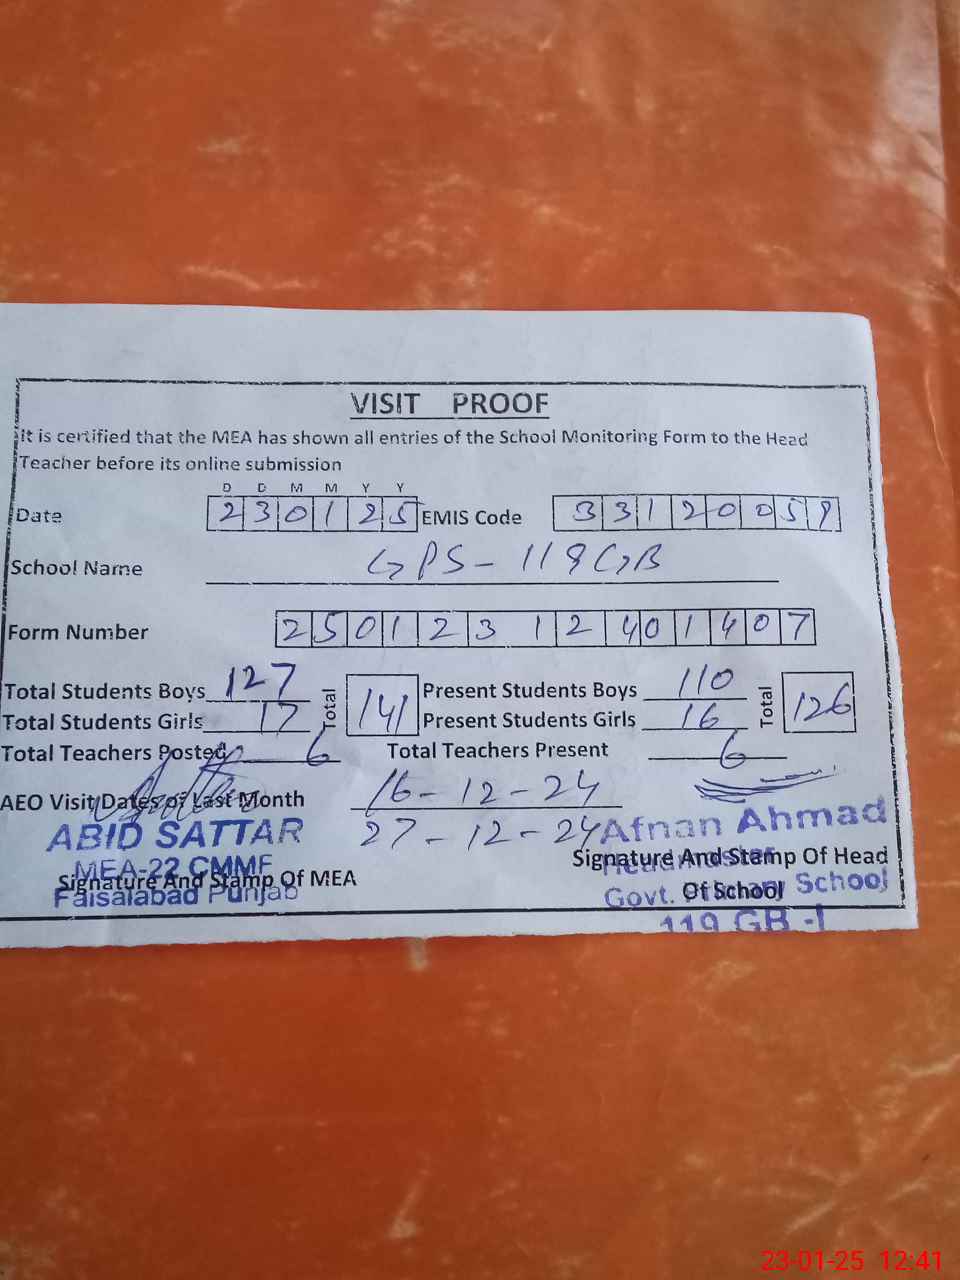 VISIT PROOF
It is certified that the MEA has shown all entries of the School Monitoring Form to the Head
Teacher before its online submission
D D M M Y Y
Date 230125 EMIS Code 33120059
School Name GPS-119GB
Form Number 25012312401407
Total Students Boys 127 Total 141 Present Students Boys 110 Total 126
Total Students Girls 17 Present Students Girls 16
Total Teachers Posted 6 Total Teachers Present 6
AEO Visit Dates of Last Month 16-12-24
27-12-24
ABID SATTAR
MEA-22 CMMF
Signature And Stamp Of MEA
Faisalabad Punjab
Afnan Ahmad
Headmaster
Signature And Stamp Of Head
Of School
Govt. Primary School
119 GB-I
23-01-25 12:41